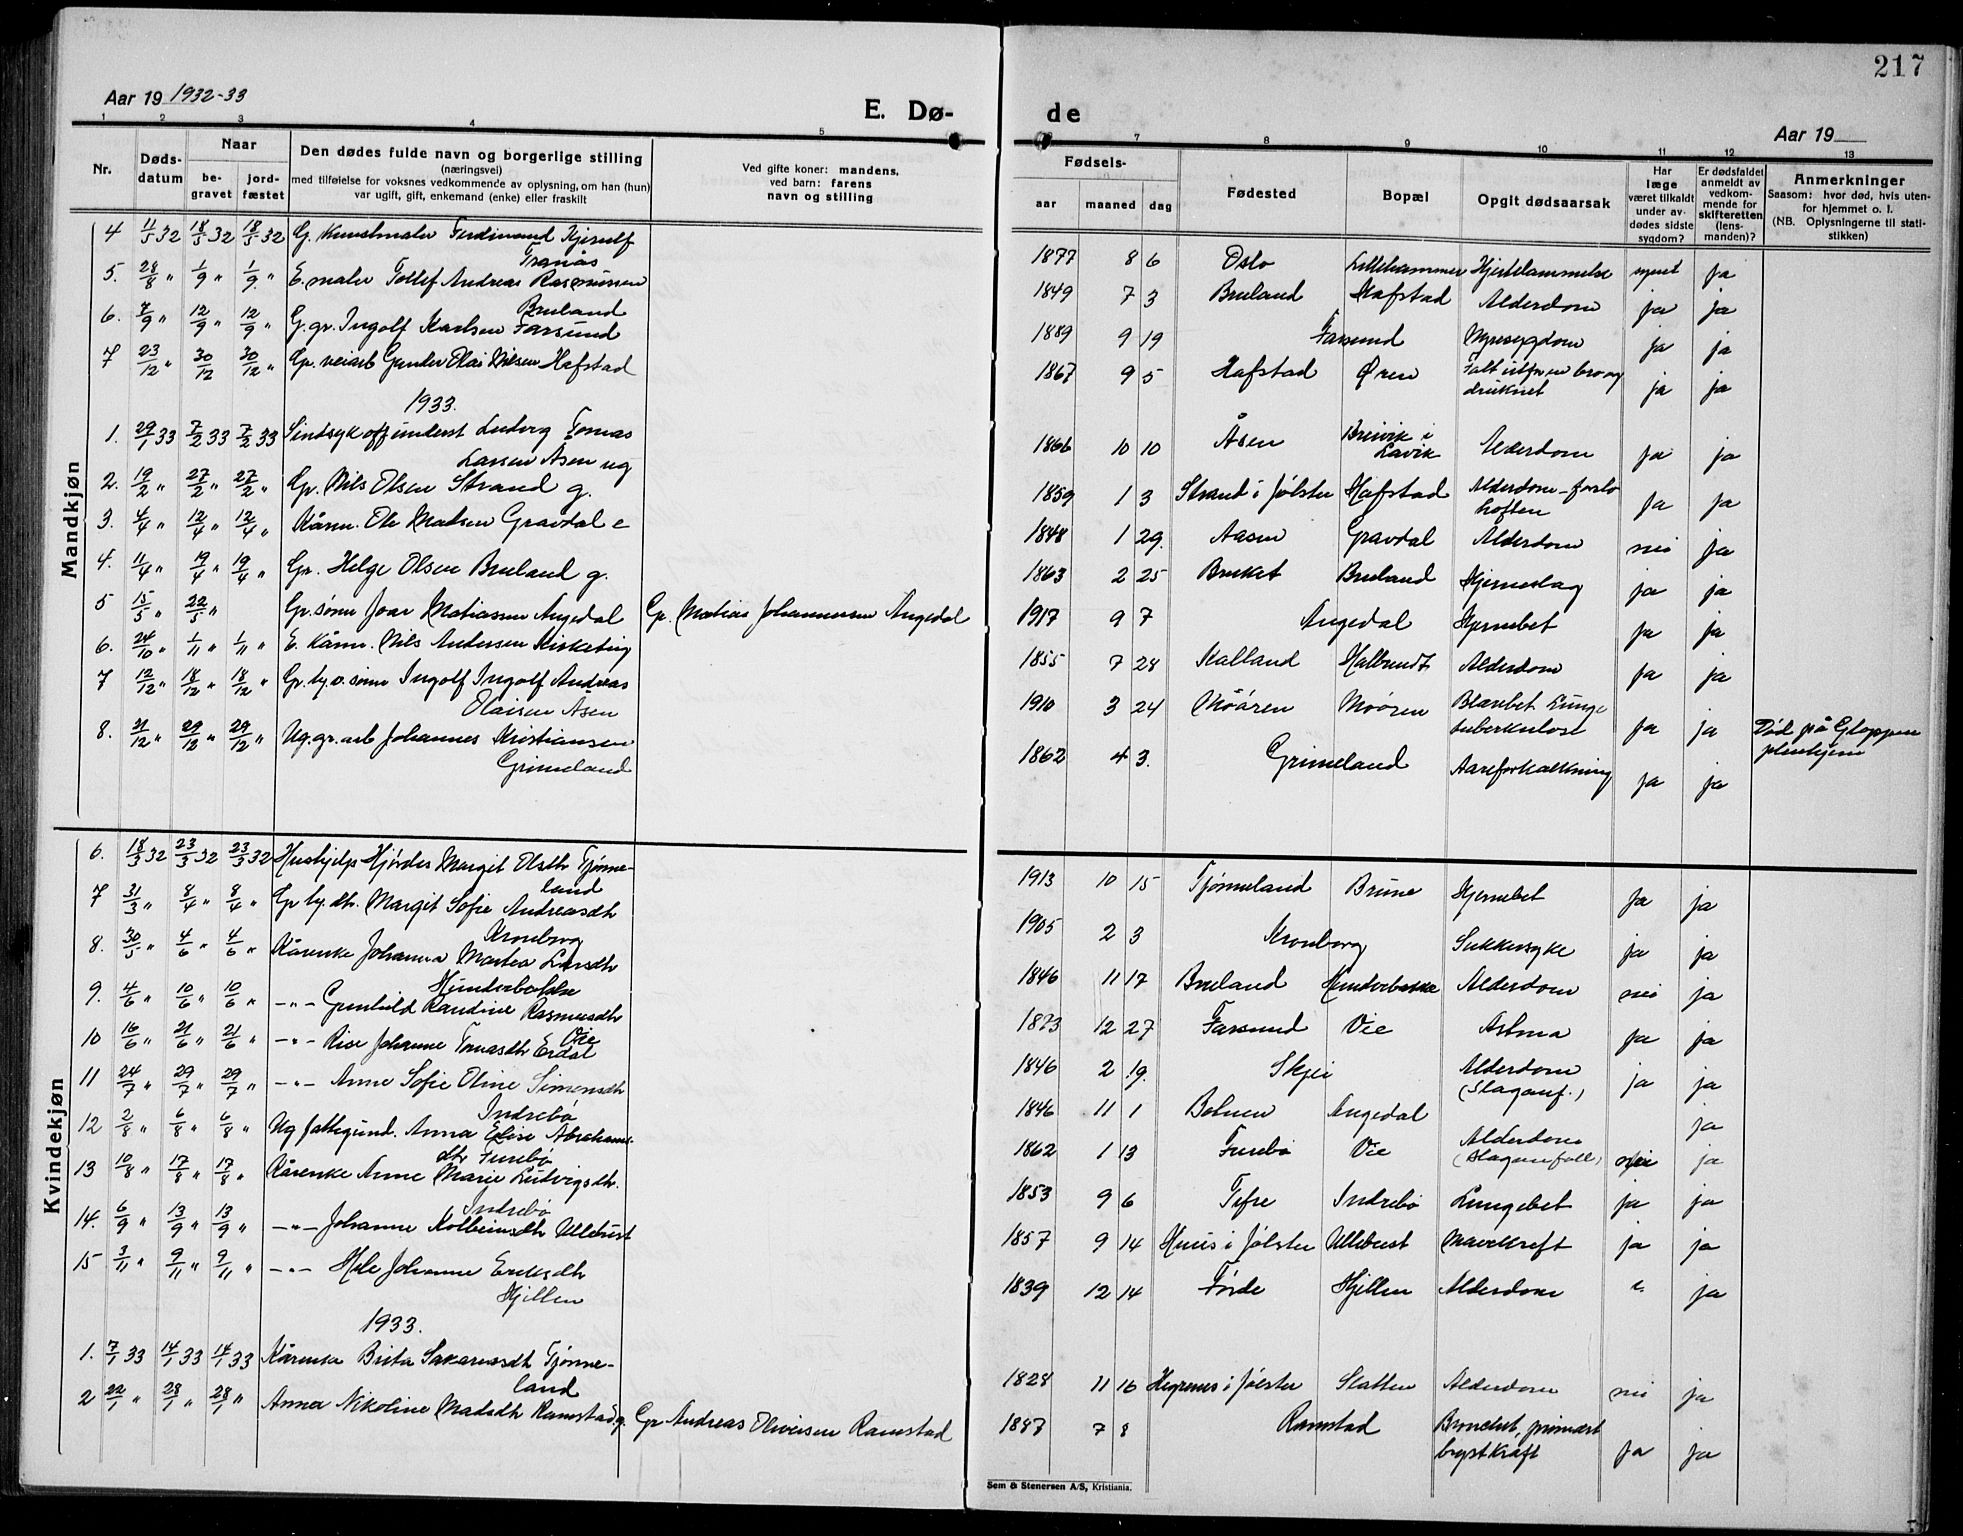 217
Aar 19 1932-33
E. Dø-
de
Aar 19
1 2 3 4 5 7 8 9 10 11 12 13
Nr.
Døds-
datum
Naar
be-
gravet
jord-
fæstet
Den dødes fulde navn og borgerlige stilling
(næringsvei)
med tilføielse for voksnes vedkommende av oplysning, om han (hun)
var ugift, gift, enkemand (enke) eller fraskilt
Ved gifte koner: mandens,
ved barn: farens
navn og stilling
Fødsels-
aar maaned dag
Fødested
Bopæl
Opgit dødsaarsak
Har
læge
været tilkaldt
under av-
dødes sidste
sygdom?
Er dødsfaldet
anmeldt av
vedkom-
mende for
skifteretten
(lens-
manden)?
Anmerkninger
Saasom: hvor død, hvis uten-
for hjemmet o. l.
(NB. Oplysningerne til stati-
stikken)
Mandkjøn
4 11/5 32 18/5 32 18/5 32 G. Kunstmaler Ferdinand Kjerulf
Tranås 1877 8 6 Oslo Lillehammer Hjertelammelse ja
5. 28/8 " 1/9 " 1/9 " E. maler Tollef Andreas Rasmussen
Bruland 1849 7 3 Bruland Hafstad Alderdom ja ja
6. 7/9 " 12/9 " 12/9 " G. gr. Ingolf Karlsen Farsund 1889 9 19 Farsund Nyresygdom ja ja
7 23/12 " 30/12 " 30/12 " Gp. veiarb Gunder Olai Nilsen Hafstad 1867 9 5 Hafstad Øren Falt utfor en bro og
druknet ja ja
1933.
1. 29/1 33 7/2 33 7/2 33 Sindsyk off underst Ludvig Tomas
Larsen Åsen ug 1866 10 10 Åsen Breivik i
Lavik Alderdom ja ja
2. 19/2 " 27/2 " 27/2 " Gp. Nils Olsen Strand g. 1859 1 3 Strand i Jølster Hafstad Alderdom ja ja
3. 4/4 " 12/4 " 12/4 " Kårm. Ole Madsen Gravdal e 1848 1 29. Aasen Gravdal Alderdom nei ja
4. 11/4 " 19/4 " 19/4 " Gp. Helge Olsen Bruland g. 1863 2 25 Bruket Bruland Hjerneslag ja ja
5 15/5 " 22/5 " Gp. sønn Joar Matiassen Angedal Gp. Matias Johannessen Angedal 1917 9 7 Angedal Hjernebet ja ja
6. 24/10 " 1/11 " 1/11 " E. Kårm. Nils Andersen 1855 7 28 Kalland Halbrendt Alderdom ja ja
7 12/12 " 18/12 " 18/12 " Gp. by. o. sønn Ingolf Ingolf Andreas
Olaisen Åsen 1910 3 24 Moøren Blærebet Lunge
tuberkulose ja ja Død på Gloppen
pleiehjem
8. 21/12 " 29/12 " 29/12 " Ug. gr. arb Johannes Kristiansen
Grimeland 1862 4 3. Grimeland Aareforkalkning ja ja
Kvindekjøn
6. 18/3 32 23/3 32 23/3 32 Hushjelp Hjørdis Margit Olsdtr Tjønne-
land 1913 10 15 Tjønneland Brune Hjernebet ja ja
7 31/3 " 8/4 " 8/4 " Gp by. dtr. Margit Sofie Andreasdtr
Kronborg 1905 2 3 Kronborg Sukkersyke ja ja
8. 30/5 " 4/6 " 4/6 " Kårenke Johanna Martea Larsdtr
1846 11 17 Bruland Alderdom nei ja
9. 4/6 " 10/6 " 10/6 " -"- Gunhild Randine Rasmusdtr
Vie 1873 12 27 Farsund Vie Astma ja ja
10 16/6 " 21/6 " 21/6 " -"- Johanne Tomasdtr Erdal 1846 2 19. Skjei Alderdom
(Slaganf.) ja ja
11 24/7 " 29/7 " 29/7 " -"- Anne Sofie Oline Simensdtr
Indrebø 1846 11 1 Angedal ja
12 2/8 " 6/8 " 6/8 " Ug fattigund. Anna Elise Abrahams-
dtr Furebø 1862 1 13 Furebø Vie Alderdom
(Slaganfall) ja
13 10/8 " 17/8 " 17/8 " Kårenke Anne Marie Ludvigsdtr.
Indrebø 1853 9 6 Tefre Indrebø Lungebet ja ja
14. 6/9 " 13/9 " 13/9 " -"- Johanne Kolbeinsdtr Ullebust 1857 9 14 Huus i Jølster Ullebust Mavekreft ja ja
15 3/11 " 9/11 " 9/11 " -"- Johanne Eriksdtr
Hjellen 1839 12 14 Førde Hjellen Alderdom " ja
1933.
1. 7/1 33 14/1 33 14/1 33 Kårenke Brita Sakariasdtr Tjønne-
land 1828 11 16 Hegrenes i Jølster Slatten Alderdom nei ja
2 22/1 " 28/1 " 28/1 " Anna Nikoline Madsdtr Ramstad g. Gp Andreas Oliversen Ramstad 1887 7 8 Ramstad primært
brystkræft ja ja
Sem & Stenersen A/S, Kristiania.